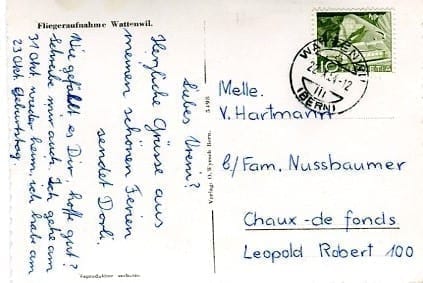 Fliegeraufnahme Wattenwil.
Liebes Vreni?
Herzliche Grüsse aus
meinen schönen Ferien
sendet Dorli.
Wie gefählt es Dir hoffe gut?
Schreibe mir auch. Ich gehe am
31 Okt. wieder heim, ich habe am
23 Okt. Geburtstag.
5498
Verlag: O. Wyss, Bern.
WATTENWIL
(BERN)
Melle.
V. Hartmann
b/Fam. Nussbaumer
Chaux-de fonds
Leopold Robert 100